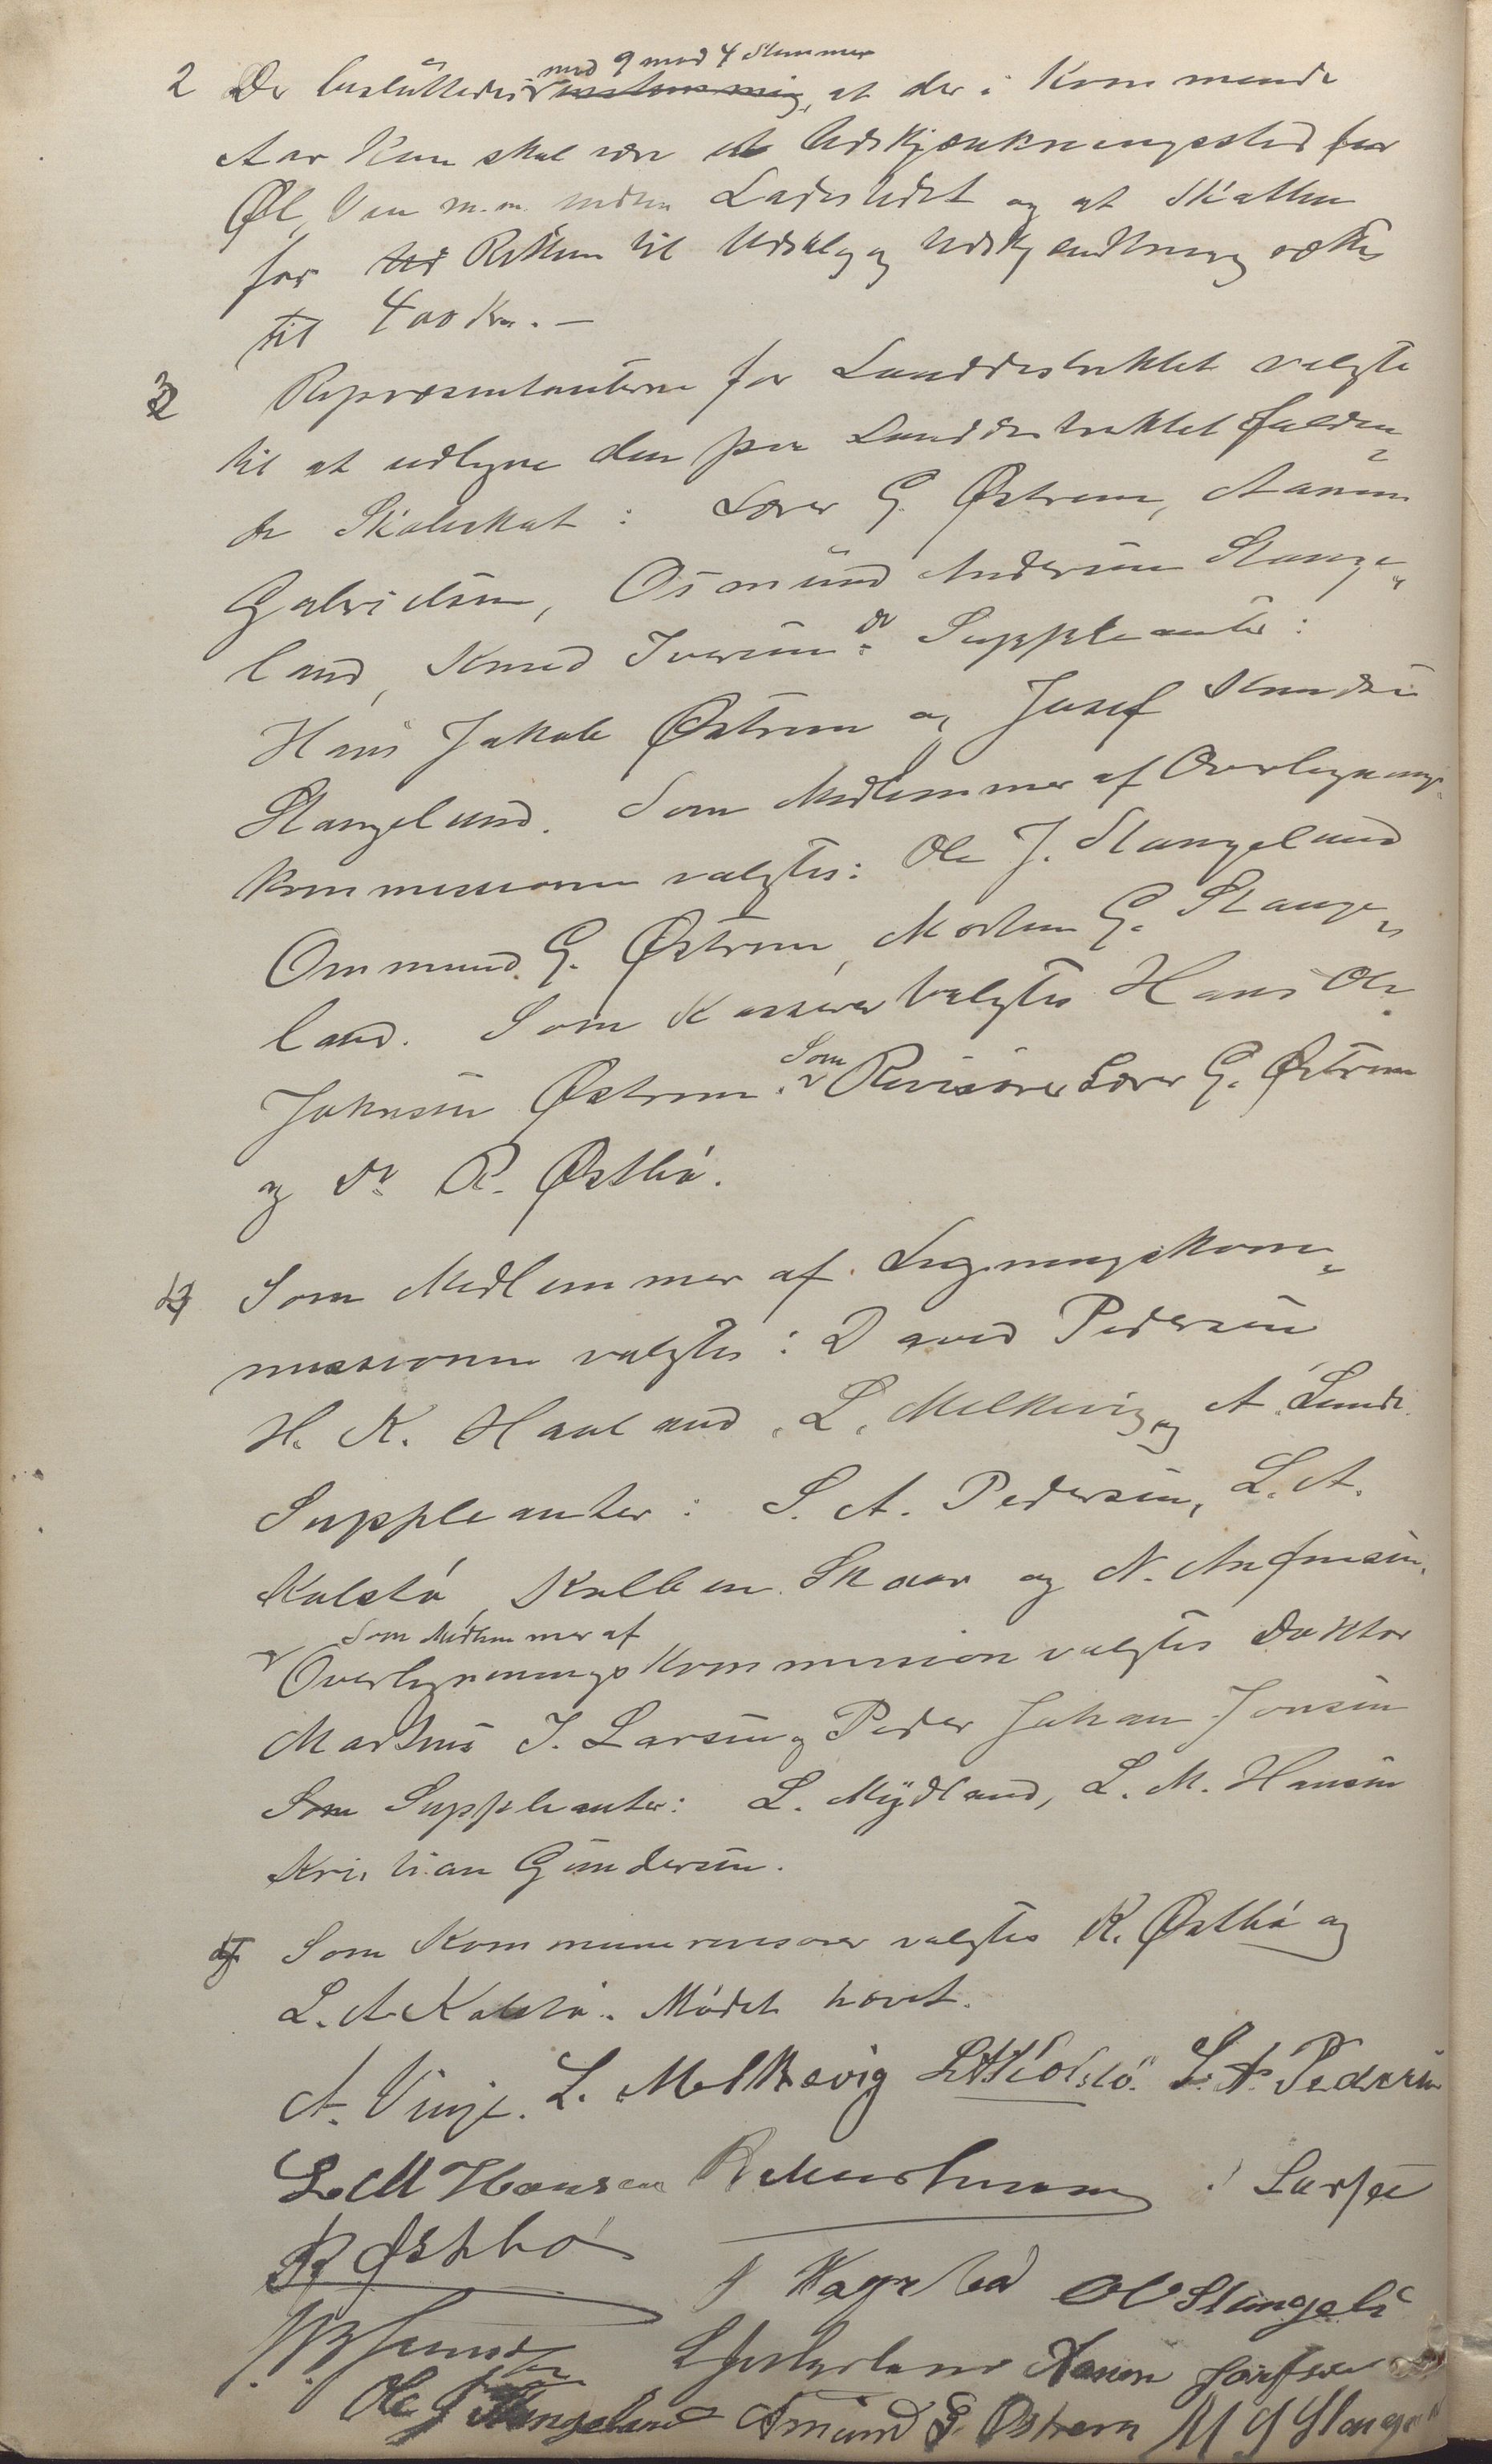 med 9 mod 4 Stemmer
2 De besluttedes enstemmig, at der i Kommende
Aar Kun skal være et Udskjænkningssted for
Øl, Vin m.m. inden Ladestedet og at Skatten
for Retten til Udsalg og Udskjænkning sættes
til 400 Kr. —
3 Repræsentanterne for Landdistriktet valgte
til at udligne den paa Landdistriktet falden-
de Skoleskat: Lærer G. Østrem, Aanen
Gabrielsen, Osmund Andersen Stange-
land, Knud Iversen do Suppleanter:
Hans Jakob Østrem og Josef Knudsen
Stangeland. Som Medlemmer af Overlignings-
kommissionen valgtes: Ole J. Stangeland
Ommund G. Østrem, Morten G. Stange-
land. Som Kasserer valgtes Hans Ole
Johnsen Østrem. Som Revisorer Lærer G. Østrem
og Dr R. Østbö.
4 Som Medlemmer af Ligningskom-
missionen valgtes: David Pedersen
H. K. Haaland, L. Melkevig og A. Lunde.
Suppleanter: S. A. Pedersen, L. A.
Kolstö, Kolben Skaar og N. Anfinsen.
Som Medlemmer af
Overligningskommission valgtes Doktor
Markus I. Larsen og Peder Johan Jonsen
Som Suppleanter: L. Mydland, L. M. Hansen
Kristian Gundersen.
Som Kommunerevisorer valgtes R. Østbö og
L. A. Kolstö. Mödet hævet.
A. Vinje. L. Melkevig L A Kolstö. S. A. Pedersen
L M Hansen Larsen
R Østbö
Ole J Stangeland Omund G. Østrem M G Stangeland